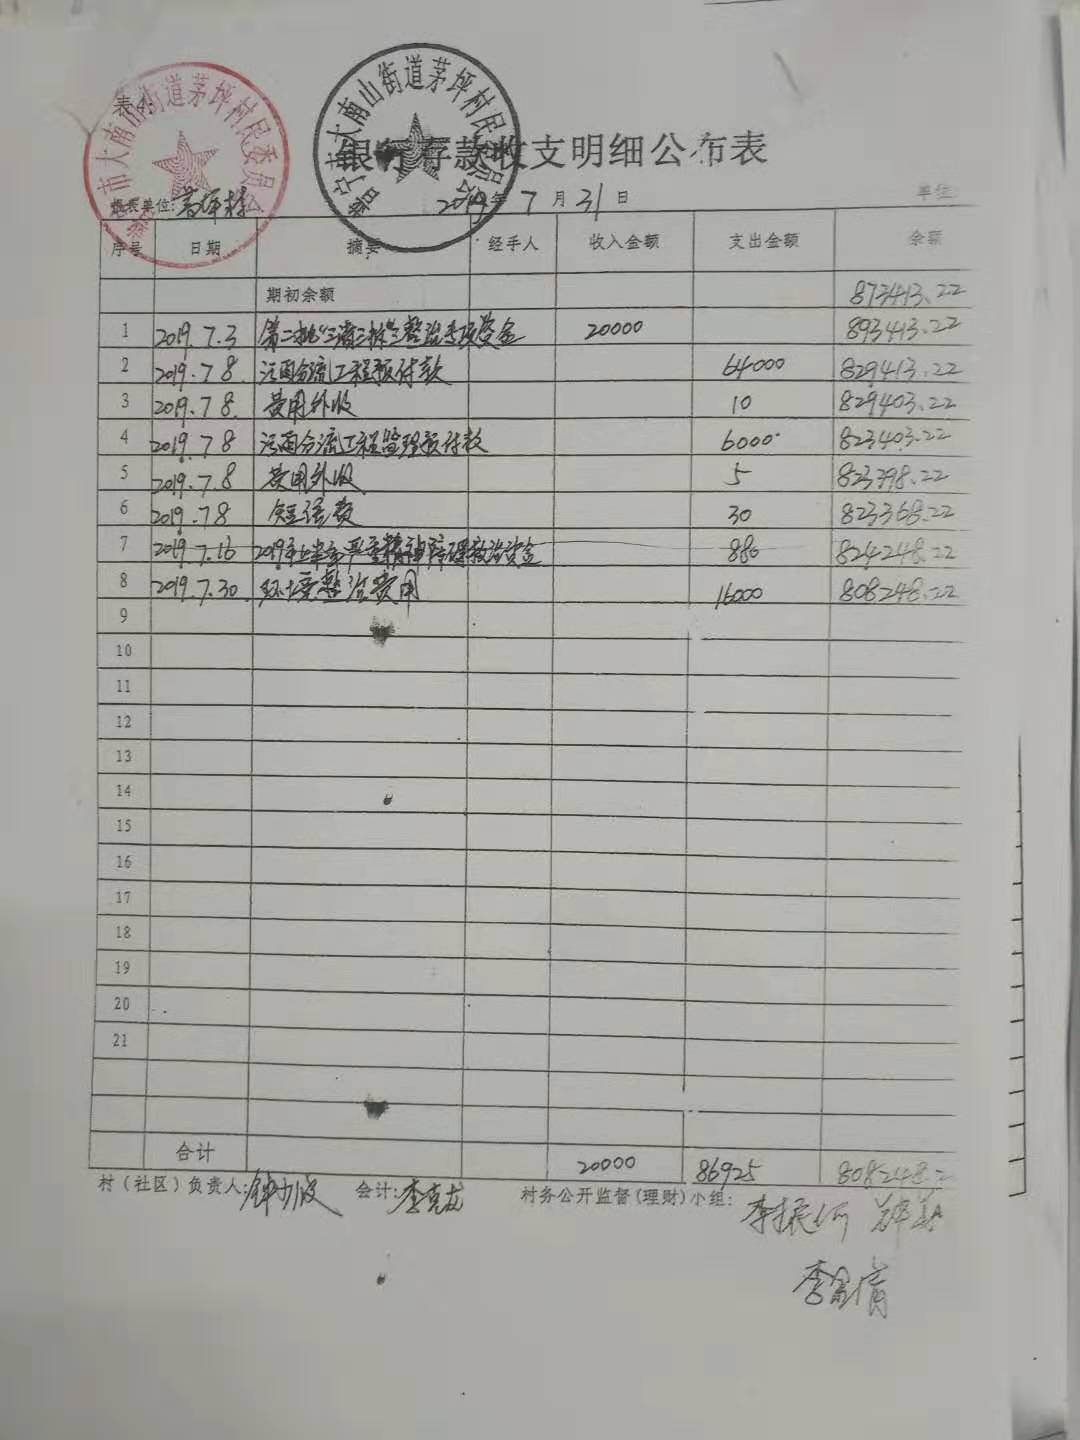 大南山街道茅坪村民委员会
普宁市大南山街道茅坪村民委员会
银行存款收支明细公布表
填表单位: 茅坪村 2019年 7 月 31 日 单位:
序号 日期 摘要 经手人 收入金额 支出金额 余额
期初余额 873413.22
1 2019.7.3 第二批"三清三拆三整治专项资金 20000 893413.22
2 2019.7 8. 污雨分流工程预付款 64000 829413.22
3 2019.7 8. 费用外收 10 829403.22
4 2019.7 8 污雨分流工程监理预付款 6000 823403.22
5 2019.7.8 费用外收 5 823398.22
6 2019.7 8 短信费 30 823368.22
7 2019.7.16 2019年上半年严重精神障碍救治资金 880 824248.22
8 2019.7.30. 环境整治费用 16000 808248.22
9
10
11
12
13
14
15
16
17
18
19
20
21
合计 20000 86925 808248.2
村（社区）负责人: 会计: 李克龙 村务公开监督(理财)小组: 李振河